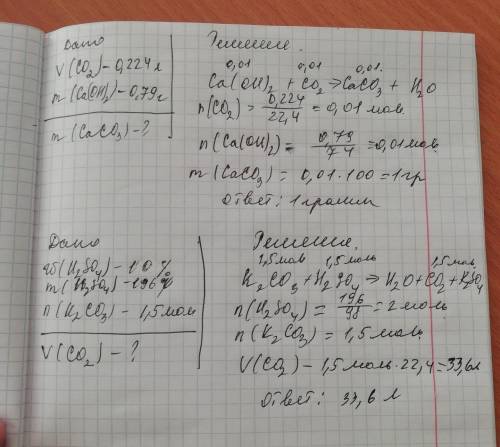 Дано
V(CO₂)–0,224 л
m(Ca(OH)₂–0,79 г
m(CaCO₃)–?
Решение.
0,01 0,01 0,01.
Ca(OH)₂ + CO₂ → CaCO₃ + H₂O
n(CO₂) = 0,224/22,4 = 0,01 мол.
n(Ca(OH)₂) = 0,79/74 = 0,01 мол.
m(CaCO₃) = 0,01 · 100 = 1 гр
Ответ: 1 грамм
Дано
(H₂SO₄) – 10 %
m(H₂SO₄) – 196
n(K₂CO₃) – 1,5 мол
V(CO₂) – ?
Решение.
1,5 мол 1,5 мол. 1,5 мол
K₂CO₃ + H₂SO₄ → H₂O + CO₂ + K₂SO₄
n(H₂SO₄) = 196/98 = 2 моль
n(K₂CO₃) = 1,5 мол.
V(CO₂) – 1,5 моль · 22,4 = 33,6 л
Ответ: 33,6 л